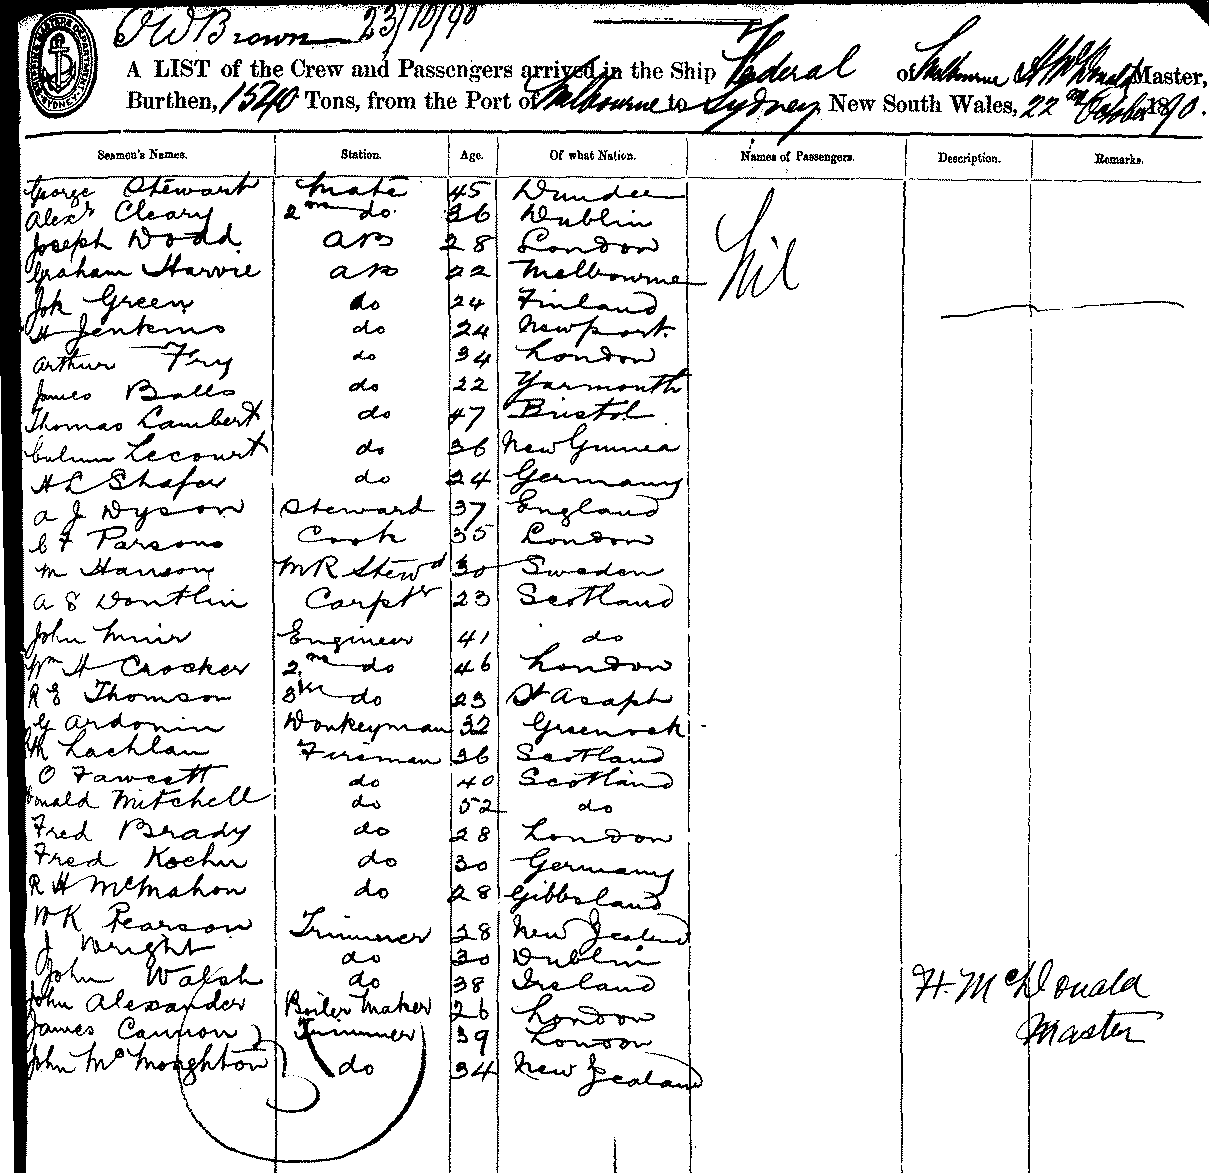 O W Brown 23/10/90
A LIST of the Crew and Passengers arrived in the Ship Federal of Melbourne H McDonald Master,
Burthen, 1540 Tons, from the Port of Melbourne to Sydney New South Wales, 22nd October 1890.
Seamen's Names. Station. Age. Of what Nation. Names of Passengers. Description. Remarks.
George Stewart Mate 45 Dundee Nil
Alexr Cleary 2nd do. 36 Dublin
Joseph Dodd AB 28 London
Graham Harvie AB 22 Melbourne
Joh Green do 24 Finland
H Jenkins do 24 Newport
Arthur Fry do 34 London
James Balls do 22 Yarmouth
Thomas Lambert do 47 Bristol
Lecourt do 36 New Guinea
H L Shafer do 24 Germany
A J Dyson Steward 37 England
C F Parsons Cook 35 London
M Hanson M R Stewd 30 Sweden
A S Dontlin Carptr 23 Scotland
John Muir Engineer 41 do
Wm H Crocker 2nd do 46 London
R E Thomson 3rd do 23 St Asaph
G Ardonin Donkeyman 32 Greenock
Lachlan Fireman 36 Scotland
O Fawcett do 40 Scotland
Donald Mitchell do 52 do
Fred Brady do 28 London
Fred Koehn do 30 Germany
R H McMahon do 28 Gibbsland
W K Pearson Trimmer 28 New Zealand
J Wright do 30 Dublin
John Walsh do 38 Ireland
John Alexander Boiler Maker 26 London
James Cannon Trimmer 39 London
John McMoughton do 34 New Zealand
H. McDonald
Master